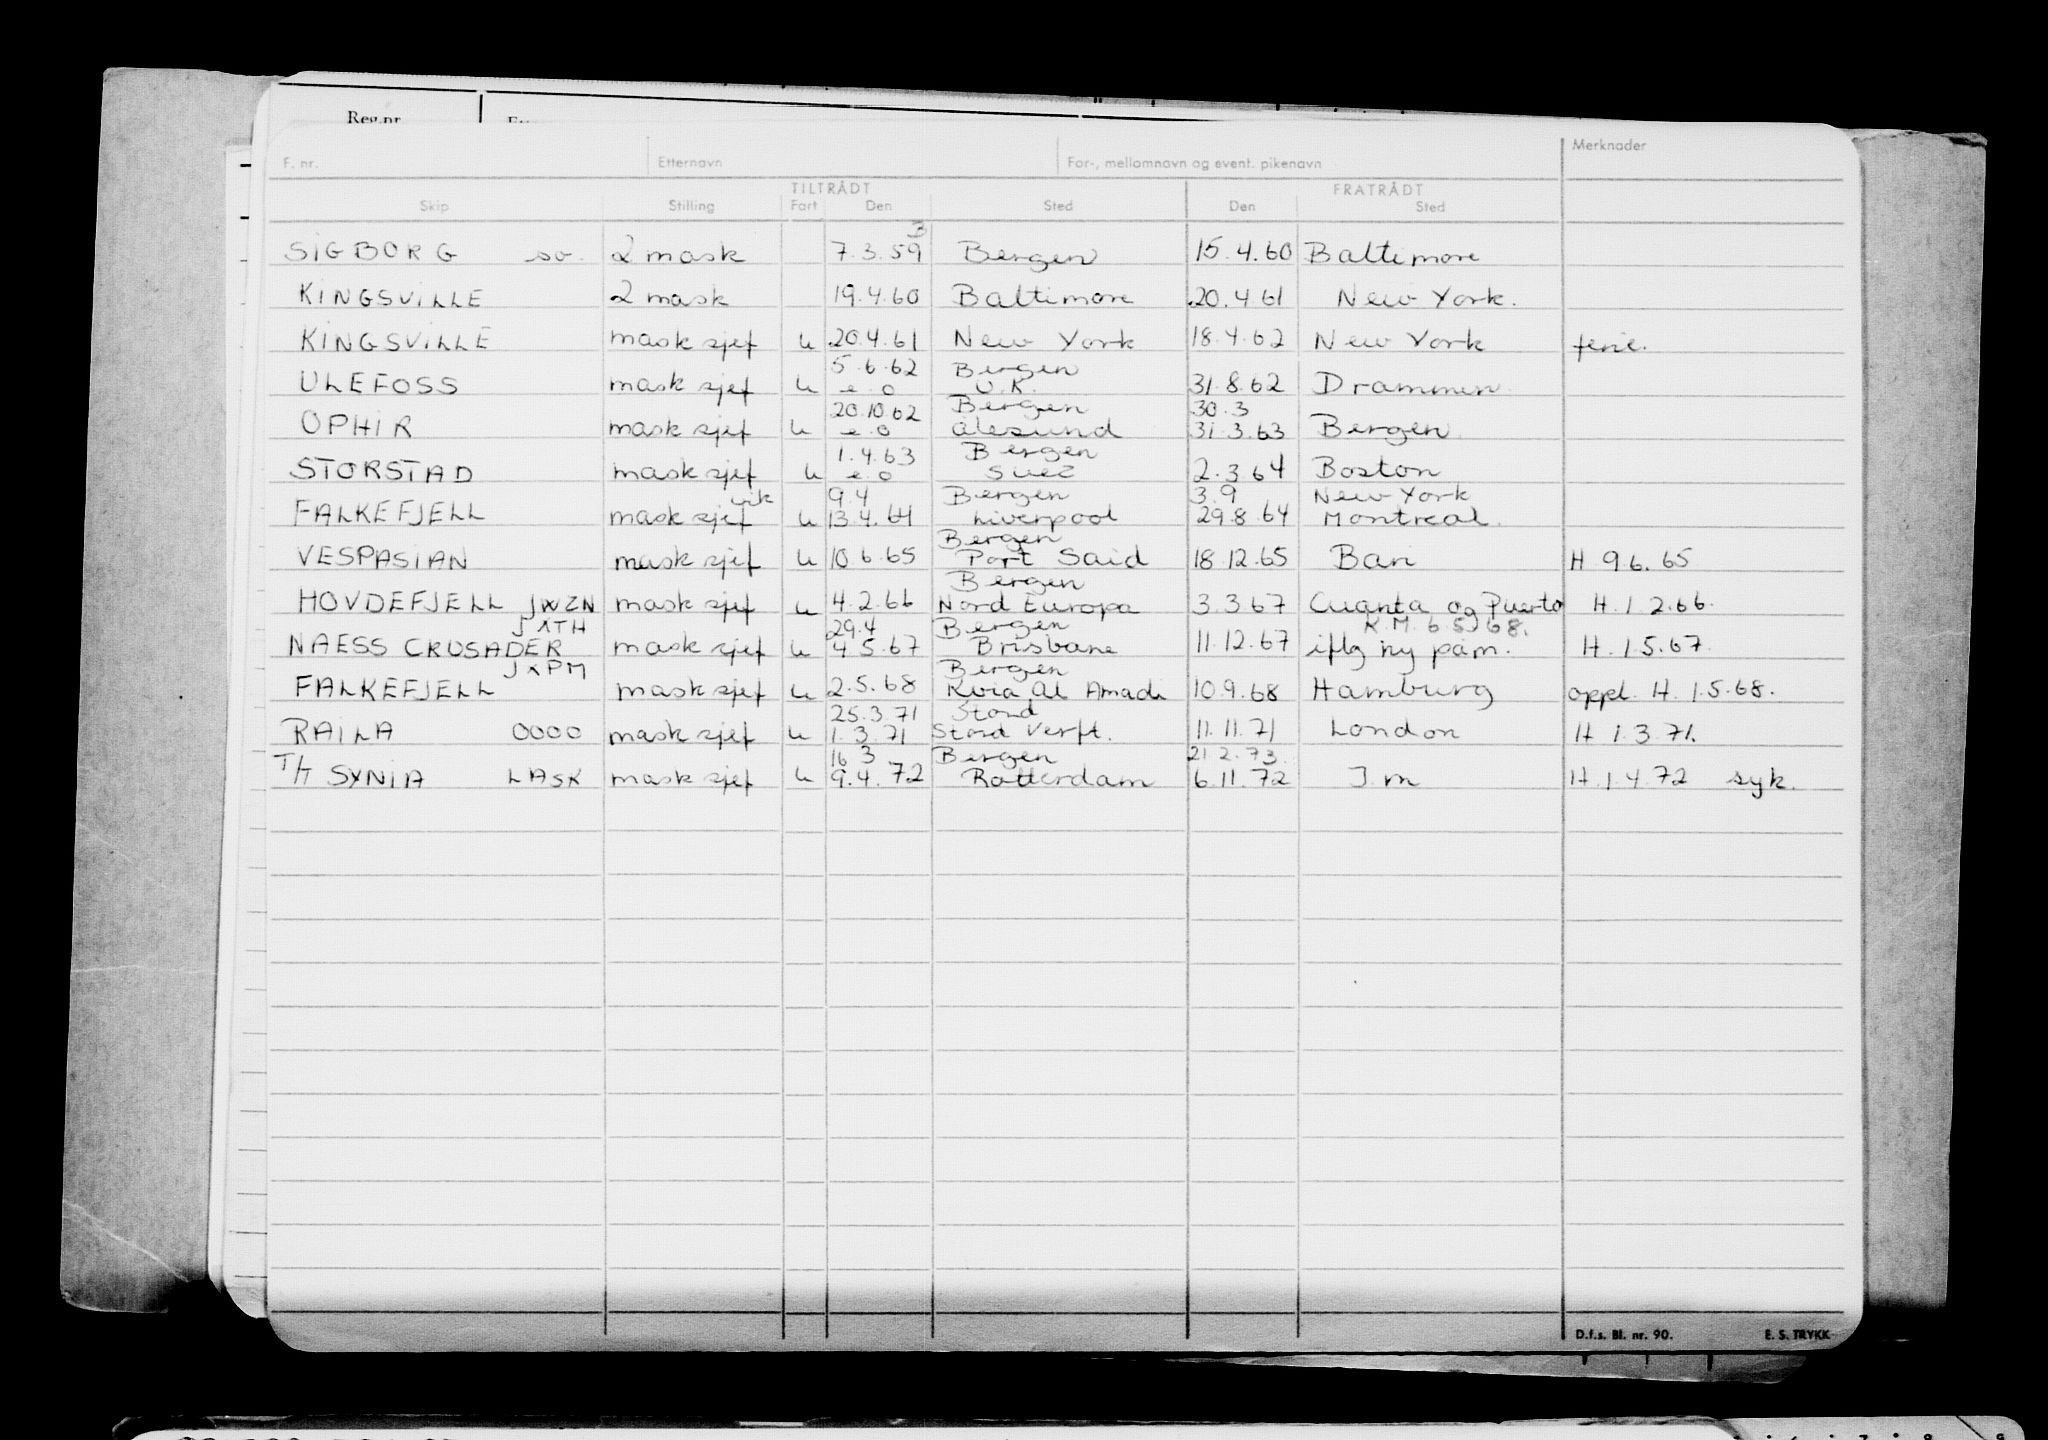 Reg.nr.
F. nr. Etternavn For-, mellomnavn og event. pikenavn Merknader
TILTRÅDT FRATRÅDT
Skip Stilling Fart Den Sted Den Sted
3
SIGBORG so. 2 mask 7.3.59 Bergen 15.4.60 Baltimore
KINGSVILLE 2 mask 19.4.60 Baltimore 20.4.61 New York.
KINGSVILLE mask sjef u 20.4.61 New York 18.4.62 New York ferie.
5.6.62 Bergen
ULEFOSS mask sjef u e.o U.K. 31.8.62 Drammen.
20.10.62 Bergen 30.3
OPHIR mask sjef u e.o Ålesund 31.3.63 Bergen.
1.4.63 Bergen
STORSTAD mask sjef u e.o Suez 2.3.64 Boston
vik 9.4 Bergen 3.9 New York
FALKEFJELL mask sjef u 13.4.64 Liverpool 29.8.64 Montreal.
Bergen
VESPASIAN mask sjef u 10.6.65 Port Said 18.12.65 Bari H 9.6.65
Bergen
HOVDEFJELL JWZN mask sjef u 4.2.66 Nord Europa 3.3.67 Cuanta og Puerto H.1.2.66.
JXTH 29.4 Bergen K.M. 6.5.68.
NAESS CRUSADER mask sjef u 4.5.67 Brisbane 11.12.67 iflg ny påm. H.1.5.67.
JXPM Bergen
FALKEFJELL mask sjef u 2.5.68 Kvia Al Amadi 10.9.68 Hamburg oppl. H.1.5.68.
25.3.71 Stord
RAILA OOOO mask sjef u 1.3.71 Stord Verft. 11.11.71 London H 1.3.71.
16 3 Bergen 21.2.73.
T/T SYNIA LASK mask sjef u 9.4.72 Rotterdam 6.11.72 I.m H.1.4.72 syk.
D.f.s. Bl. nr. 90. E. S. TRYKK